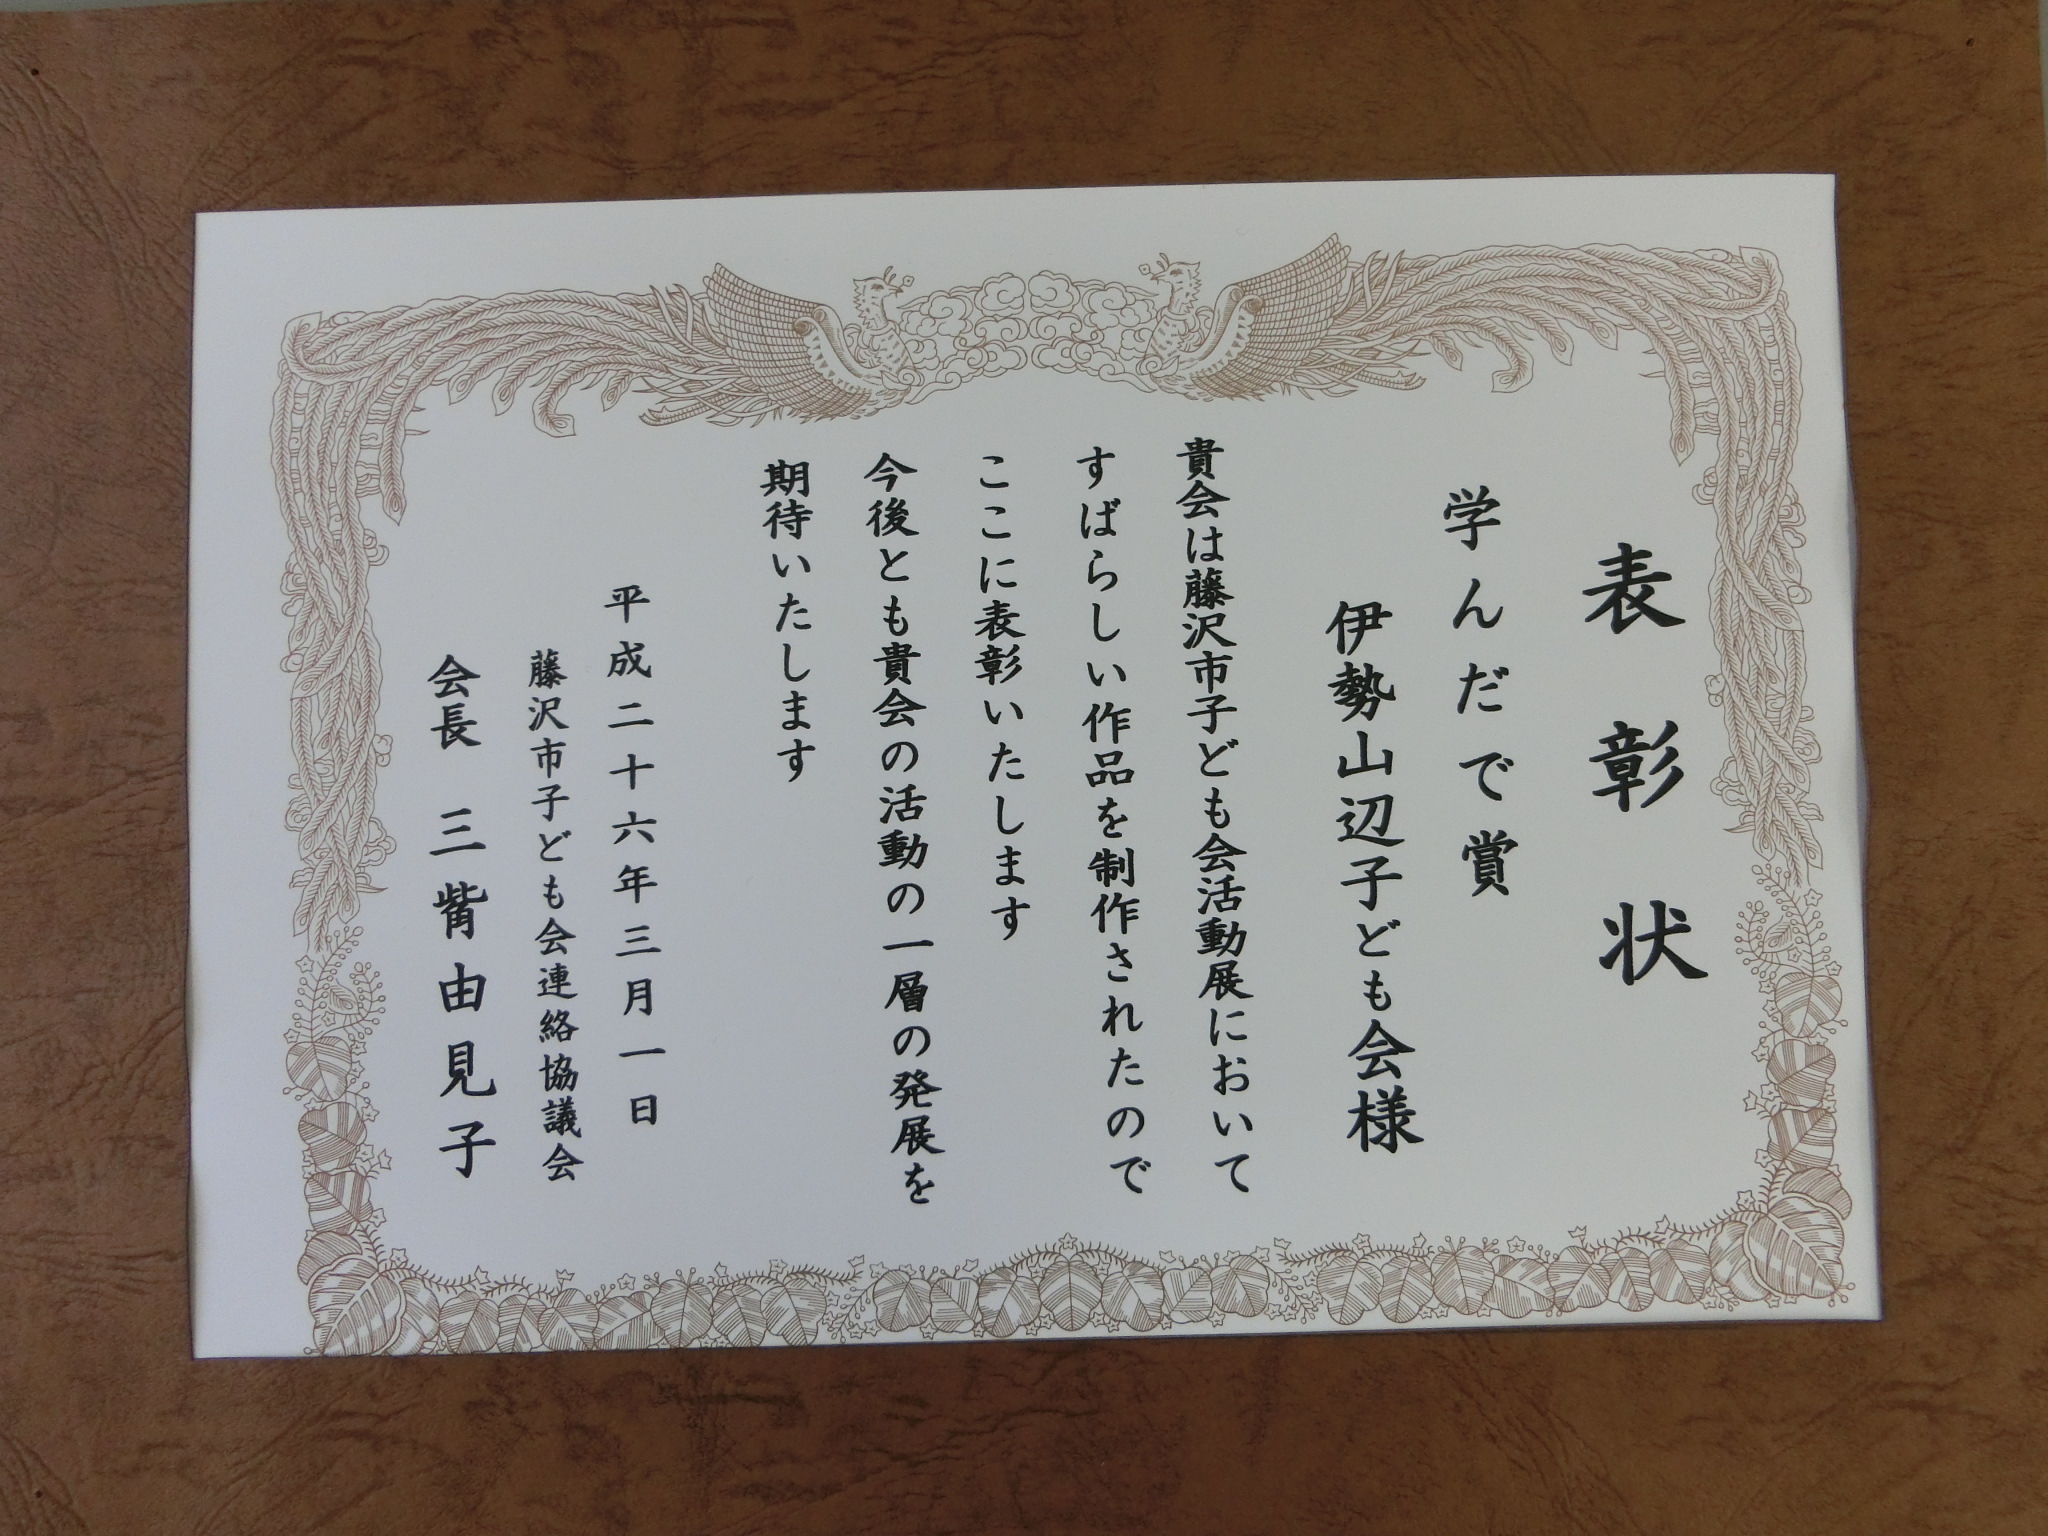 表彰状
学んだで賞
伊勢山辺子ども会様
貴会は藤沢市子ども会活動展において
すばらしい作品を制作されたので
ここに表彰いたします
今後とも貴会の活動の一層の発展を
期待いたします
平成二十六年三月一日
藤沢市子ども会連絡協議会
会長 三觜由見子